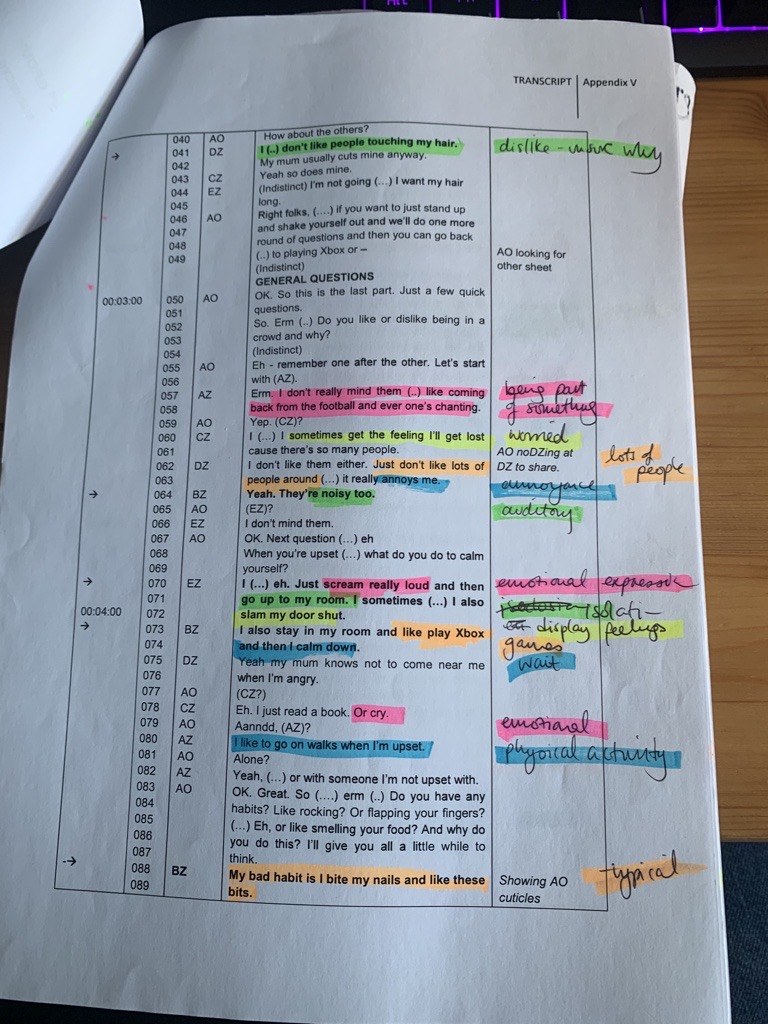 TRANSCRIPT | Appendix V
040 AO How about the others?
→ 041 DZ I (..) don't like people touching my hair. dislike - unsure why
042 My mum usually cuts mine anyway.
043 CZ Yeah so does mine.
044 EZ (Indistinct) I'm not going (...) I want my hair
045 long.
046 AO Right folks, (....) if you want to just stand up
047 and shake yourself out and we'll do one more
048 round of questions and then you can go back AO looking for
049 (..) to playing Xbox or – other sheet
(Indistinct)
GENERAL QUESTIONS
00:03:00 050 AO OK. So this is the last part. Just a few quick
051 questions.
052 So. Erm (..) Do you like or dislike being in a
053 crowd and why?
054 (Indistinct)
055 AO Eh - remember one after the other. Let's start
056 with (AZ).
057 AZ Erm. I don't really mind them (..) like coming being part
058 back from the football and ever one's chanting. of something
059 AO Yep. (CZ)?
060 CZ I (...) I sometimes get the feeling I'll get lost worried
061 cause there's so many people. AO noDZing at
062 DZ I don't like them either. Just don't like lots of DZ to share. lots of
063 people around (...) it really annoys me. annoyance people
→ 064 BZ Yeah. They're noisy too.
065 AO (EZ)? auditory
066 EZ I don't mind them.
067 AO OK. Next question (...) eh
068 When you're upset (...) what do you do to calm
069 yourself?
→ 070 EZ I (...) eh. Just scream really loud and then emotional expression
071 go up to my room. I sometimes (...) I also
00:04:00 072 slam my door shut. display feelings
→ 073 BZ I also stay in my room and like play Xbox games
074 and then I calm down. wait
075 DZ Yeah my mum knows not to come near me
076 when I'm angry.
077 AO (CZ?)
078 CZ Eh. I just read a book. Or cry. emotional
079 AO Aanndd, (AZ)?
080 AZ I like to go on walks when I'm upset. physical activity
081 AO Alone?
082 AZ Yeah, (...) or with someone I'm not upset with.
083 AO OK. Great. So (....) erm (..) Do you have any
084 habits? Like rocking? Or flapping your fingers?
085 (...) Eh, or like smelling your food? And why do
086 you do this? I'll give you all a little while to
087 think.
→ 088 BZ My bad habit is I bite my nails and like these Showing AO typical
089 bits. cuticles